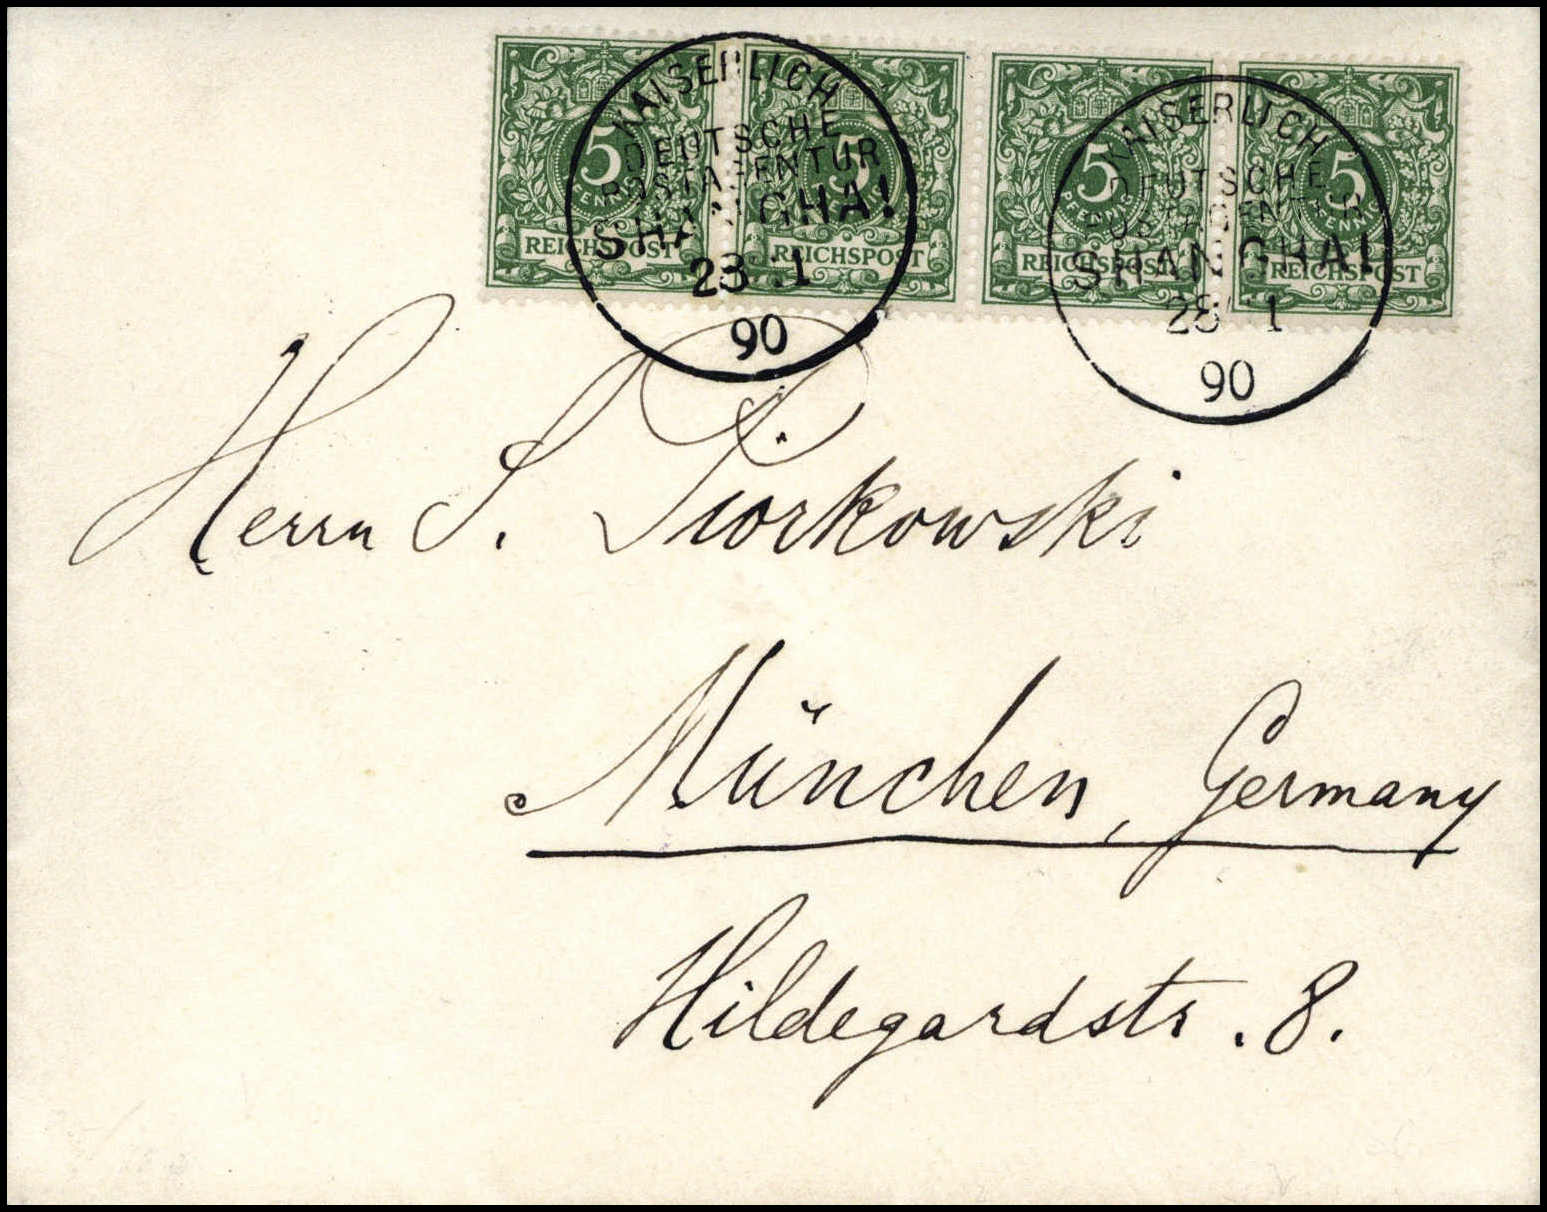 5 PFENNIG REICHSPOST
5 REICHSPOST
5 PFENNIG REICHSPOST
5 PFENNIG REICHSPOST
KAISERLICH
DEUTSCHE
POSTAGENTUR
SHANGHAI
23 1
90
KAISERLICH
DEUTSCHE
POSTAGENTUR
SHANGHAI
28 1
90
Herrn S.
München, Germany
Hildegardstr. 8.